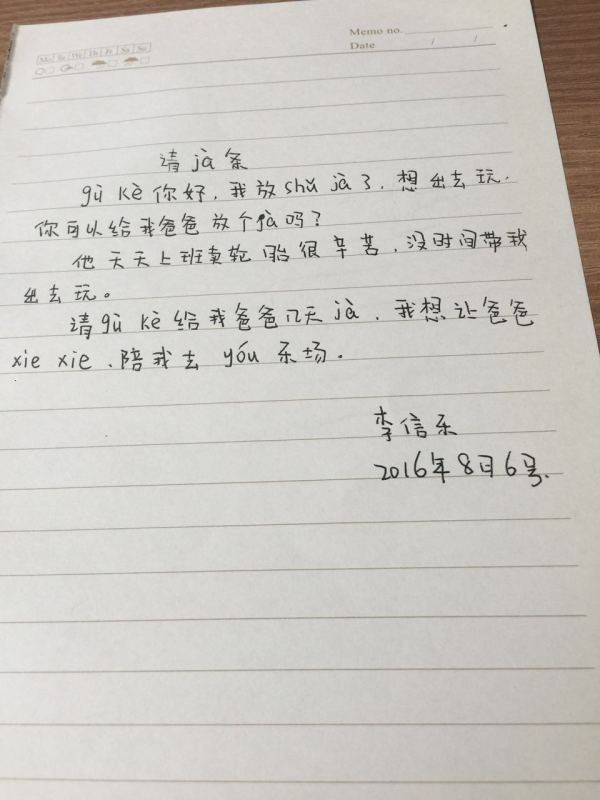 Memo no.
Mo Tu We Th Fr Sa Su
Date / /
请 jà 条
gù kè 你好，我放 shǔ jà 了，想出去玩.
你可以给我爸爸放个jà吗？
他天天上班卖轮胎很辛苦，没时间带我
出去玩。
请 gù kè 给我爸爸几天 jà，我想让爸爸
xie xie、陪我去 yóu 乐场。
李信乐
2016年8月6号.